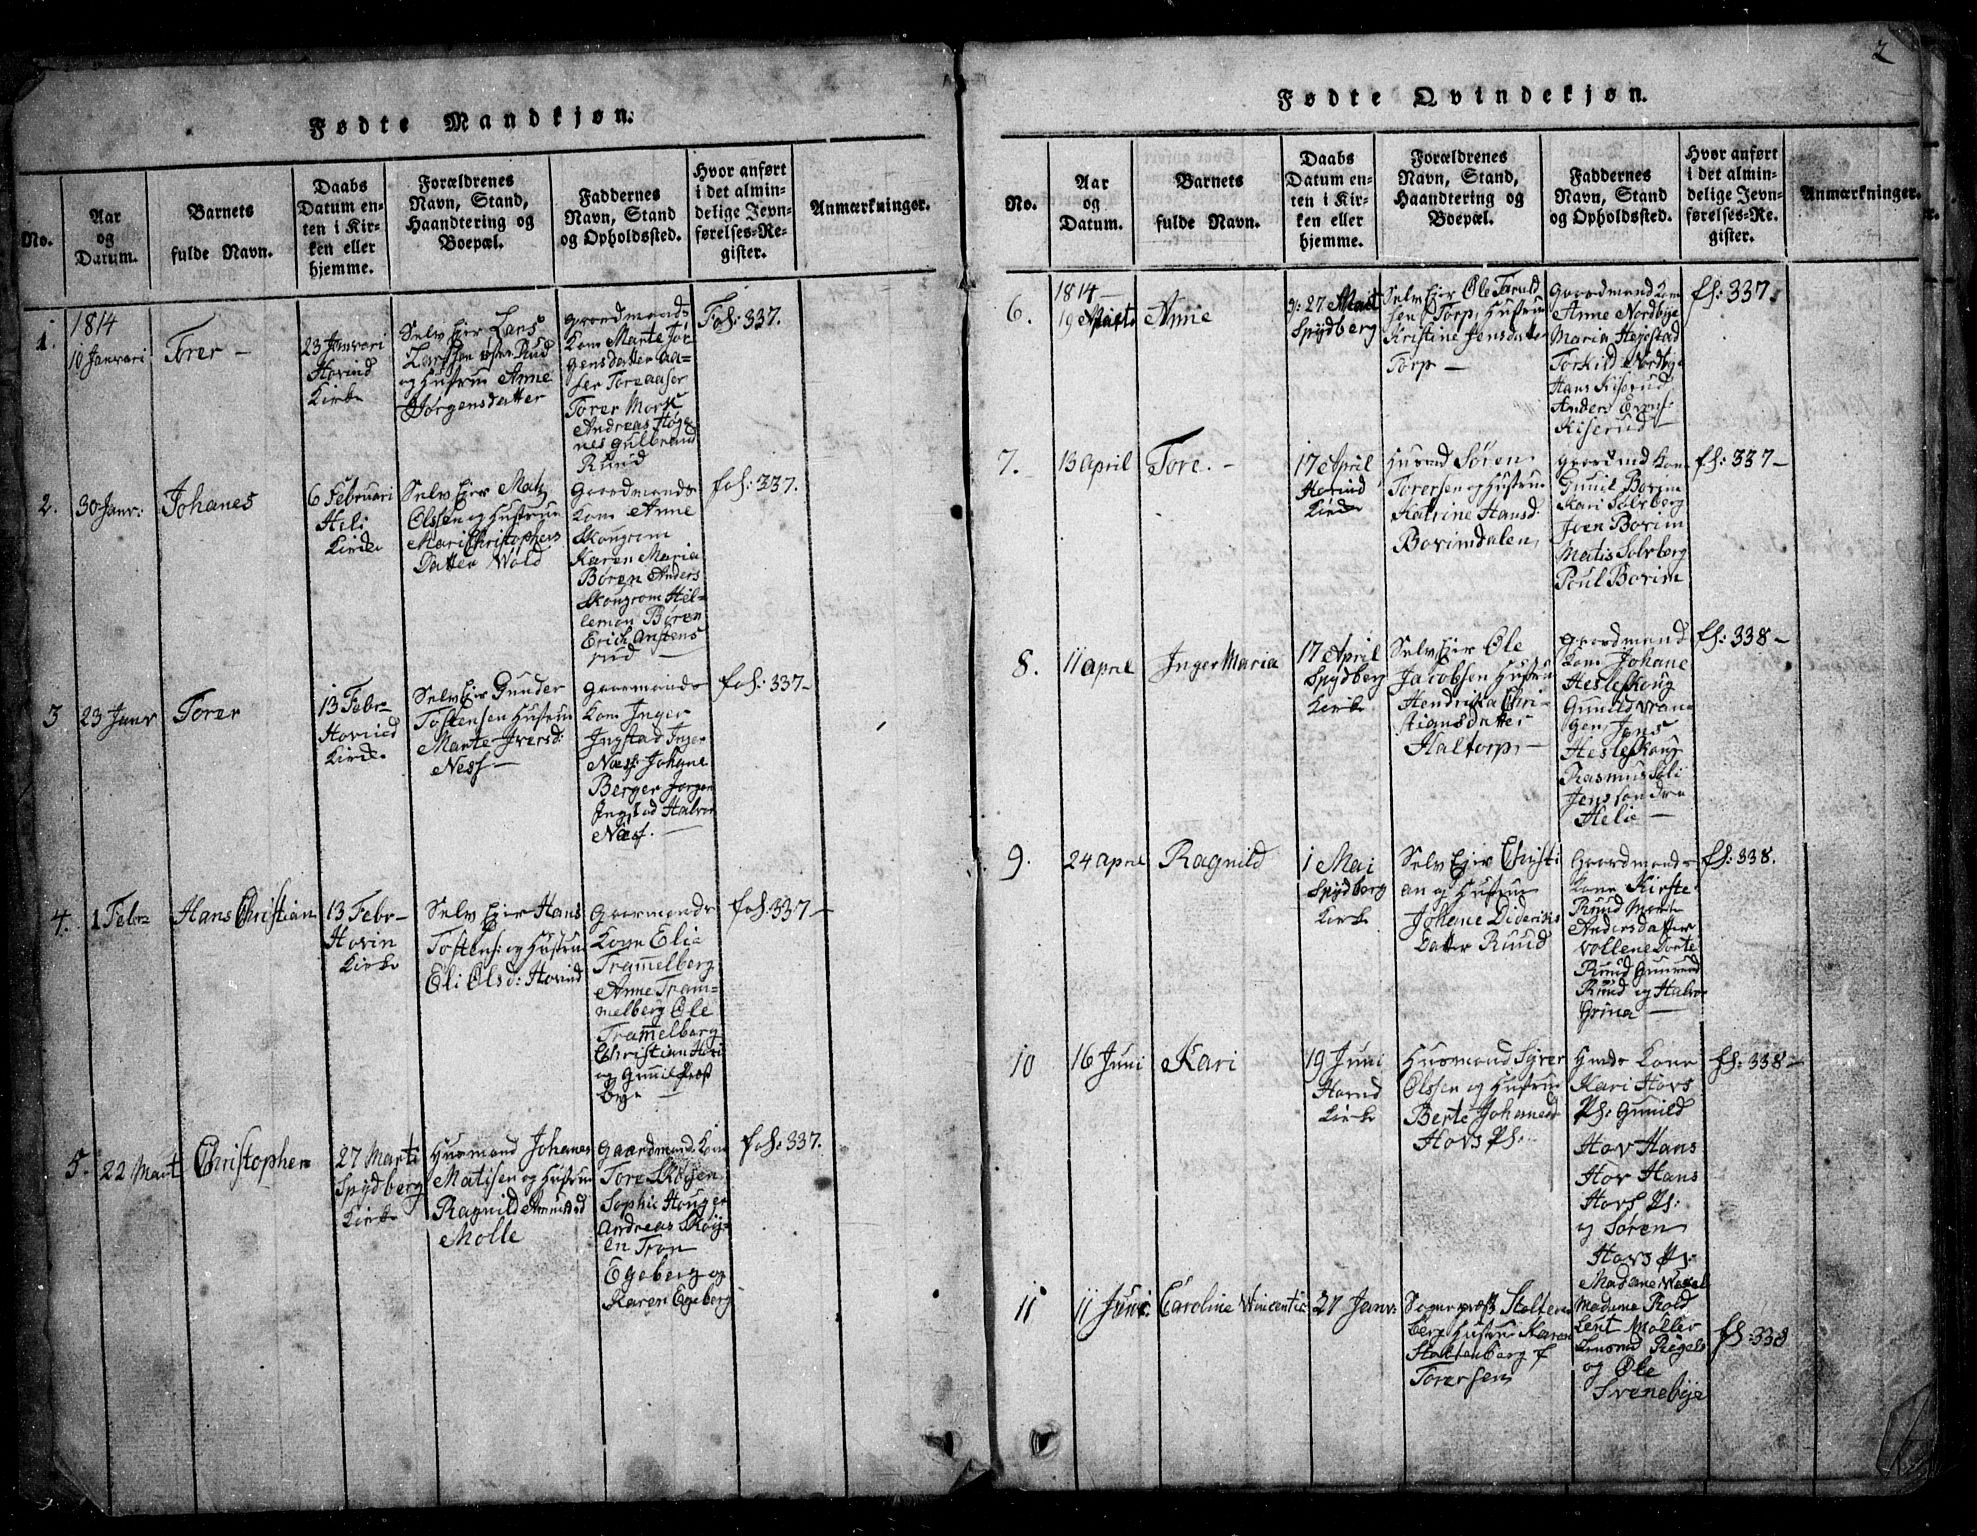 2
Fødte Mandkjøn.
No.
Aar
og
Datum.
Barnets
fulde Navn.
Daabs
Datum en-
ten i Kir-
ken eller
hjemme.
Forældrenes
Navn, Stand,
Haandtering og
Boepæl.
Faddernes
Navn, Stand
og Opholdssted.
Hvor anført
i det almin-
delige Jevn-
førelses-Re-
gister.
Anmærkninger.
1.
1814
10 Janvari
Torer —
23 Janvari
Hovind
Kirke
Selv Ejer Lars
Larssen øster Rud
og Hustrue Anne
Jørgensdatter
Gaardmands
Kone Marte Jør
gensdatter Aa-
ser Tore Aaser
Torer Mork
Andreas Høge
nes Gulbrand
Ruud
Fol: 337.
2.
30 Janv:
Johanes
6 Februari
Heli
Kirke
Selv Ejer Matz
Olssen og Hustrue
Mari Christophers
Datter Wold
Gaardmands
Kone Anne
Skougrom
Karen Maria
Børen Anders
Skougrom Hel-
lemon Børen
Erich
rud —
fol: 337.
3
23 Janv
Torer
13 Febr—
Hovind
Kirke
Selv Ejer Gunder
Tostensen Hustrue
Marte Iversd:
Ness —
Gaarmands
Kone Inger
Ingstad Inger
Næss Johane
Berger Jørgen
Ingstad Halvor
Næss. —
fol: 337—
4.
1 Febr
Hans Christian
13 Febr—
Hovin
Kirke
Selv Ejer Hans
Tostens: og Hustrue
Eli Olsd: Hovind
Gaarmands
Kone Elie
Tramelberg
Anne Tram-
melberg Ole
Tramelberg
Christian Hovi
og Gunnil Præst
Bye
fol: 337—
5.
22 Mart
Christopher
27 Marti
Spydberg
Kirke
Husmand Johanes
Matisen og Hustrue
Ragnild Amundsd
Molle
Gaardmands Kone
Tore Skøyen
Sophie Houger
Andreas Skøy-
en Tron
Egeberg og
Karen Egeberg
fol: 337.
Fødte Qvindekjøn.
No.
Aar
og
Datum.
Barnets
fulde Navn.
Daabs
Datum en-
ten i Kir-
ken eller
hjemme.
Forældrenes
Navn, Stand,
Haandtering og
Boepæl.
Faddernes
Navn, Stand
og Opholdssted.
Hvor anført
i det almin-
delige Jevn-
førelses-Re-
gister.
Anmærkninger.
6.
1814—
19 Marts
Anne
27 Mart
Spydberg
Selv Ejer Ole Taruld
sen Torp, Hustrue
Kristine Jensdatter
Torp —
Gaardmand Kone
Anne Nordbye
Maria Hejestad
Torkild Nordbye
Hans Kiserud
Anders
Kiserud —
fl: 337.
7.
13 April
Tore. —
17 April
Hovind
Kirke
Husmd Søren
Torersen og Hustrue
Katrine Hansd:
Bovimdalen,
Gaardmd Kone
Gunil Bovim
Kari Solberg
Joen Bovim
Matis Solberg
Poul Bovim
fl: 337—
8.
11 April
Inger Maria
17 April
Spydberg
Kirke
Selv Ejer Ole
Jacobsen Hustrue
Hendrika Chri-
stiansdatter
Haltorp —
Gaardmand
Kone Johane
Hesleskoug
Gunild Vran
gen Jens
Hesleskoug
Rasmus Heli
Jens søndre
Helie —
fl: 338—
9.
24 April
Ragnild
1 Mai
Spydberg
Kirke
Selv Ejer Christi
an og Hustrue
Johane Dideriks
Datter Ruud
Gaardmands
Kone Kirste
Ruud Marte
Andersdatter
Vollene Dorte
Ruud Gunerud
Ruud og Halvo
Grina —
fl: 338.
10
16 Juni
Kari
19 Juni
Hovind
Kirke
Husmand Syver
Olssen og Hustrue
Berte Johanesd
Hovs Pl:
Hmds Kone
Kari Hovs
Pl: Gunild
Hov Hans
Hov Hans
Hovs Pl:
og Søren
Hovs Pl
fl: 338—
11
11 Juni
Caroline Wincentia
27 Janv:
Sogneprest Stolten
berg Hustrue Karen
Stoltenberg f
Torersen
Madame Wessel
Madame Rold
Lent Moller
Rigels
og Ole
Svenebye
fl: 338